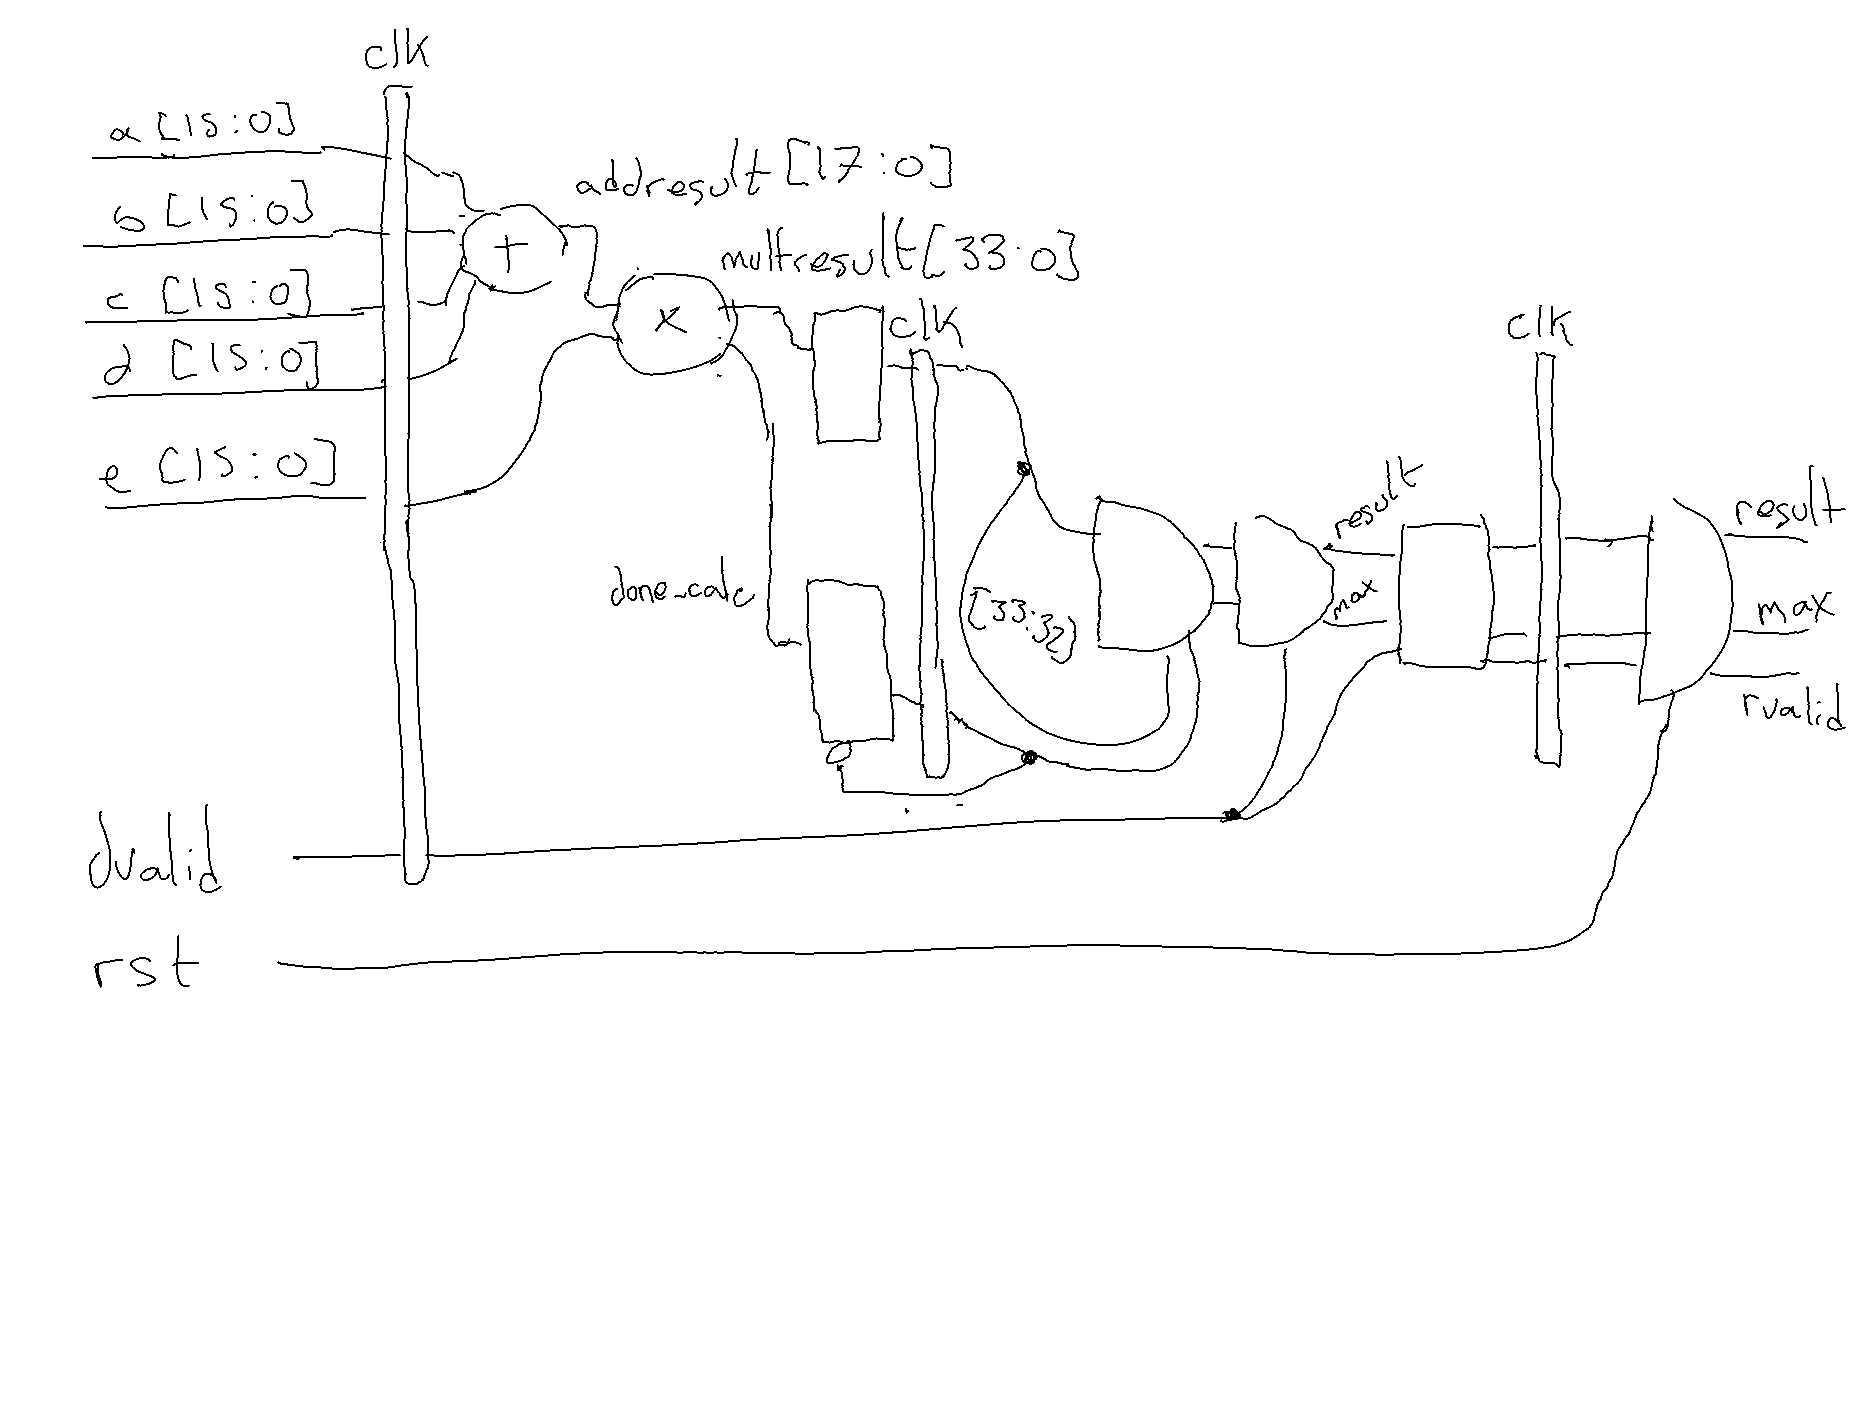 clk
a [15:0]
b [15:0]
c [15:0]
d [15:0]
e [15:0]
+
addresult [17:0]
x
multresult [33:0]
clk
done_calc
[33:32]
result
max
clk
result
max
rvalid
dvalid
rst